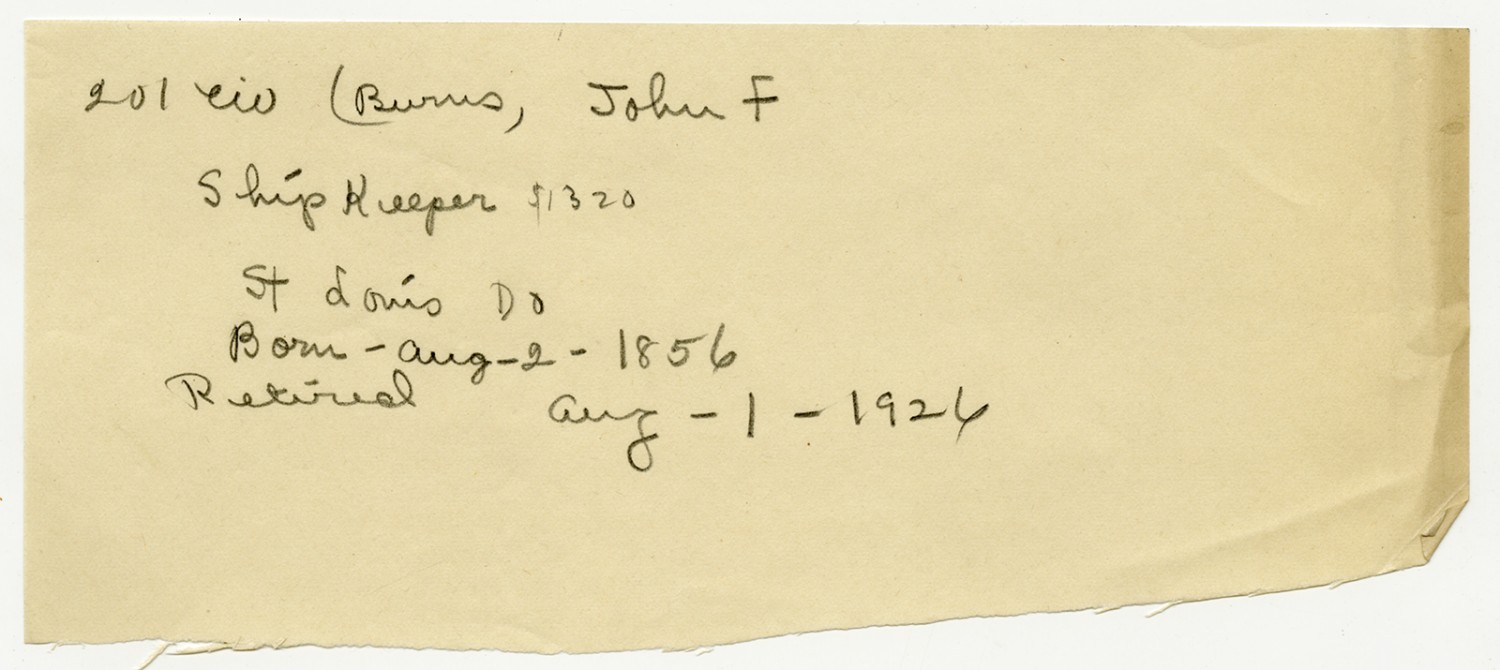 201 civ (Burns, John F
Ship Keeper $1320
St Louis Do
Born - Aug - 2 - 1856
Retired Aug - 1 - 1926